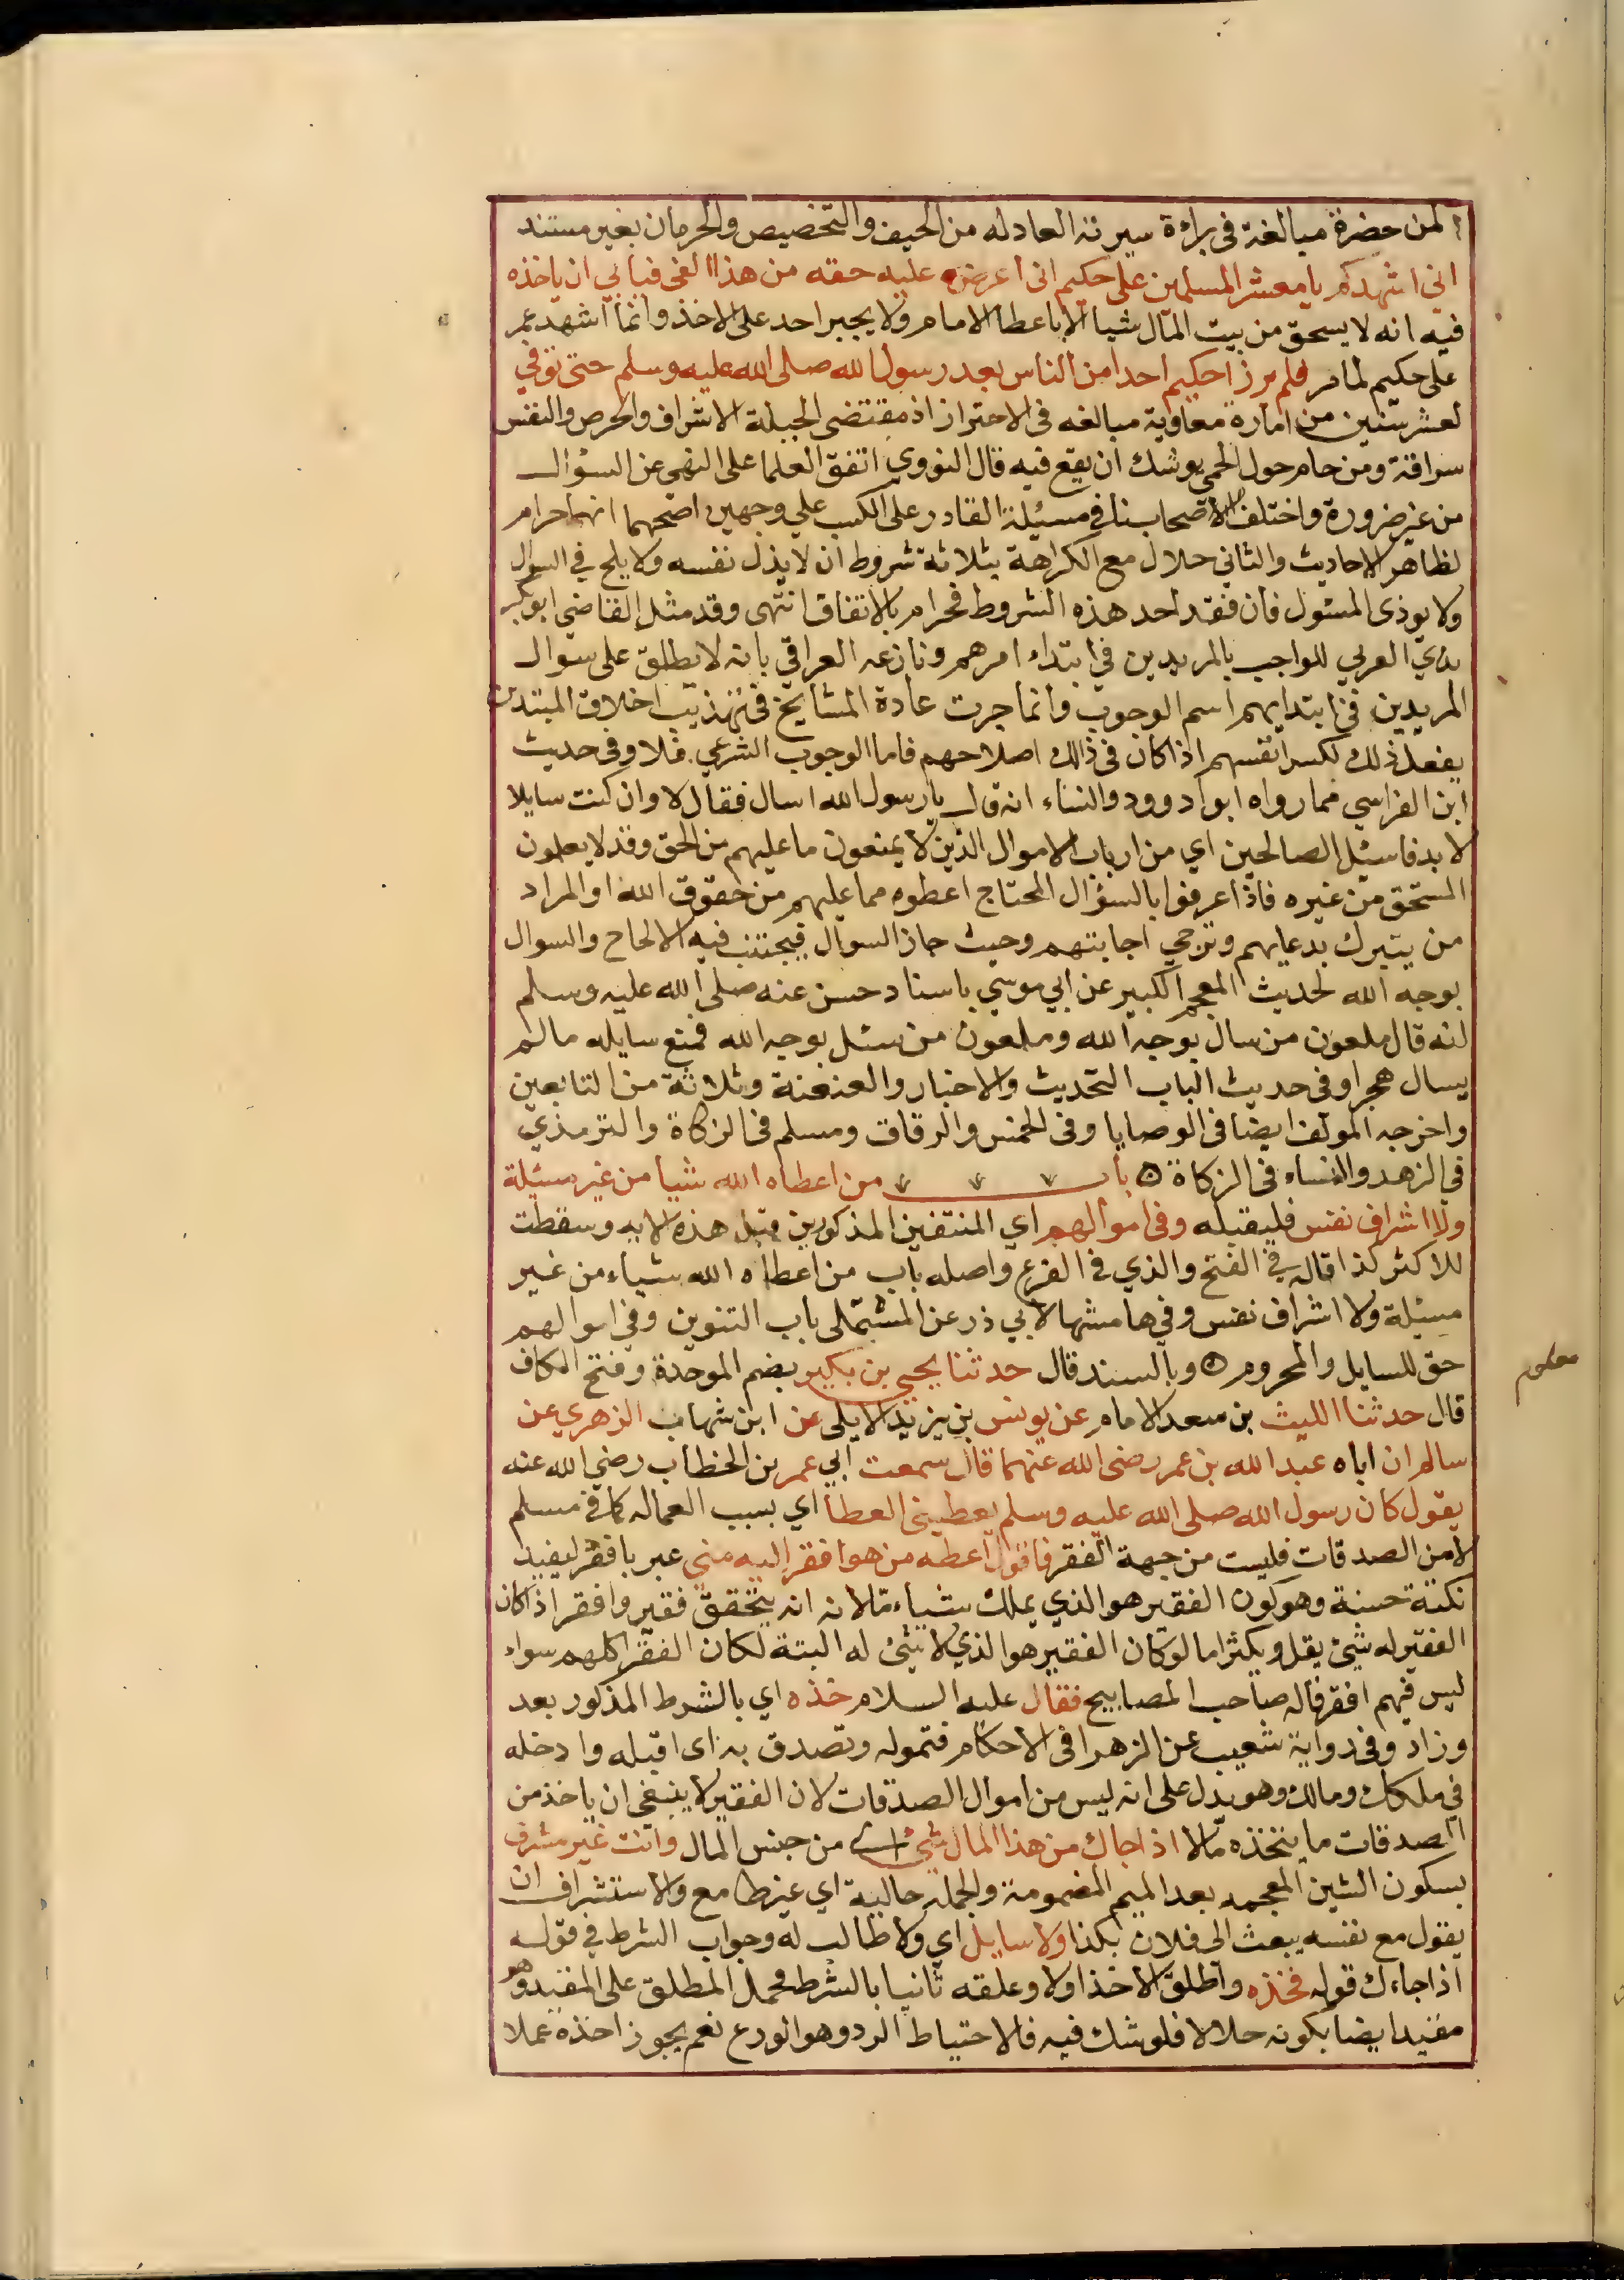 لمن حضرة مبالغة في براءة سيرته العادله من الحيف والتخصيص والحرمان بغير مستند
اني اشهدكم يا معشر المسلمين على حكيم اني اعرض عليه حقه من هذا الفى فيابي ان ياخذه
فيه انه لا يسحق من بيت المال شيا الا باعطا الامام ولا يجبر احد على الاخذ وانما اشهد عمر
على حكيم لما مر فلم يرزا حكيم احدا من الناس بعد رسول الله صلى الله عليه وسلم حتى توفي
لعشر سنين من امارة معاوية مبالغه في الاحتراز اذ مقتضى الجبلة الاشراف والحرص والنفس
سراقة ومن حام حول الحمى يوشك ان يقع فيه قال النووي اتفق العلما على النهي عن السؤال
من غير ضرورة واختلف الاصحابنا في مسئلة القادر على الكسب علي وجهين اصحهما انها حرام
لظاهر الاحاديث والثاني حلال مع الكراهة بثلاثة شروط ان لا يذل نفسه ولا يلح في السوال
ولا يوذى المسئول فان فقد احد هذه الشروط فحرام بالاتفاق انتهى وقد مثل القاضي ابو بكر
بن العربي للواجب بالمريدين في ابتداء امرهم ونازعه العراقي بانه لا يطلق على سوال
المريدين في ابتدايهم اسم الوجوب وانما جرت عادة المشايخ في تهذيب اخلاق المبتدين
يفعل ذلك لكسر انفسهم اذا كان في ذالك اصلاحهم فاما الوجوب الشرعي فلا وفي حديث
ابن الفراسي مما رواه ابو ادوود والنساء انه قال يا رسول الله اسال فقال لا وان كنت سايلا
لا بد فاسئل الصالحين اي من ارباب الاموال الذين لا يمنعون ما عليهم من الحق وقد لا يعلمون
المستحق من غيره فاذا عرفوا بالسؤال المحتاج اعطوه مما عليهم من حقوق الله او المراد
من يتبرك بدعايهم وترجي اجابتهم وحيث جاز السوال فيجتنب فيه الالحاح والسوال
بوجه الله لحديث المعجم الكبير عن ابي موسي باسناد حسن عنه صلى الله عليه وسلم
انه قال ملعون من سال بوجه الله وملعون من سئل بوجه الله فمنع سايله ما لم
يسال هجرا وفي حديث الباب التحديث والاخبار والعنعنة وثلاثة من التابعين
واخرجه المولف ايضا في الوصايا وفي الخمس والرقاق ومسلم في الزكاة والترمذي
في الزهد والنساء في الزكاة ۞ باب من اعطاه الله شيا من غير مسئلة
ولا اشراف نفس فليقبله وفي اموالهم اي المنتفين المذكورين قبل هذه الايه وسقطت
للاكثر كذا قاله في الفتح والذي في الفرع واصله باب من اعطاه الله شياء من غير
مسئلة ولا اشراف نفس وفي هامشها لابي ذر عن المستملى باب التنوين وفي اموالهم
حق للسايل والمحروم ۞ وبالسند قال حدثنا يحيي بن بكير بضم الموحدة وفتح الكاف
قال حدثنا الليث بن سعد الامام عن يونس بن يزيد الايلى عن ابن شهاب الزهري عن
سالم ان اباه عبد الله بن عمر رضى الله عنهما قال سمعت ابي عمر بن الخطاب رضي الله عنه
يقول كان رسول الله صلى الله عليه وسلم يعطينى العطا اي بسبب العماله كما في مسلم
لا من الصدقات فليست من جهة الفقر فاقول اعطه من هو افقر اليه مني عبر بافقر ليفيد
نكتة حسنة وهو كون الفقير هو الذي يملك شياء ما لانه انه يتحقق فقير وافقر اذا كان
الفقير له شئ يقل ويكثر اما لو كان الفقير هو الذي لا شئ له البتة لكان الفقرا كلهم سواء
ليس فيهم افقر قاله صاحب المصابيح فقال عليه السلام خذه اي بالشرط المذكور بعد
وزاد وفي رواية شعيب عن الزهرا في الاحكام فتموله وتصدق به اى اقبله وادخله
في ملكك ومالك وهو يدل على انه ليس من اموال الصدقات لان الفقير لا ينبغي ان ياخذ من
الصدقات ما يتخذه مالا اذا جاك من هذا المال شئ اي من جنس المال وانت غير مشرف
بسكون الشين المعجمه بعد الميم المضمومة والجمله حالية اي غير طامع والاستشراف ان
يقول مع نفسه يبعث الى فلان بكذا ولا سايل اي ولا طالب له وجواب الشرط في قوله
اذا جاءك قوله فخذه واطلق الاخذ اولا وعلقه ثانيا بالشرط فحمل المطلق على المقيد وهو
مقيد ايضا بكونه حلالا فلو شك فيه فالاحتياط الرد وهو الورع نعم يجوز اخذه عملا